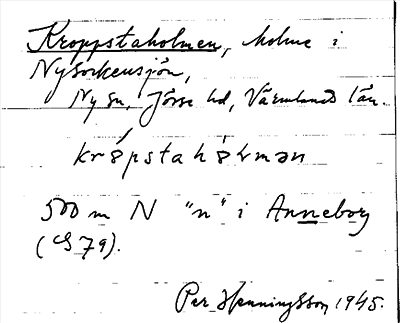 Kroppstaholmen, holme i
Nysockensjön,
Ny sn, Jösse hd, Värmlands län.
krópstahólmən
500 m N "n" i Anneborg
(G 79).
Per Henningsson 1945.